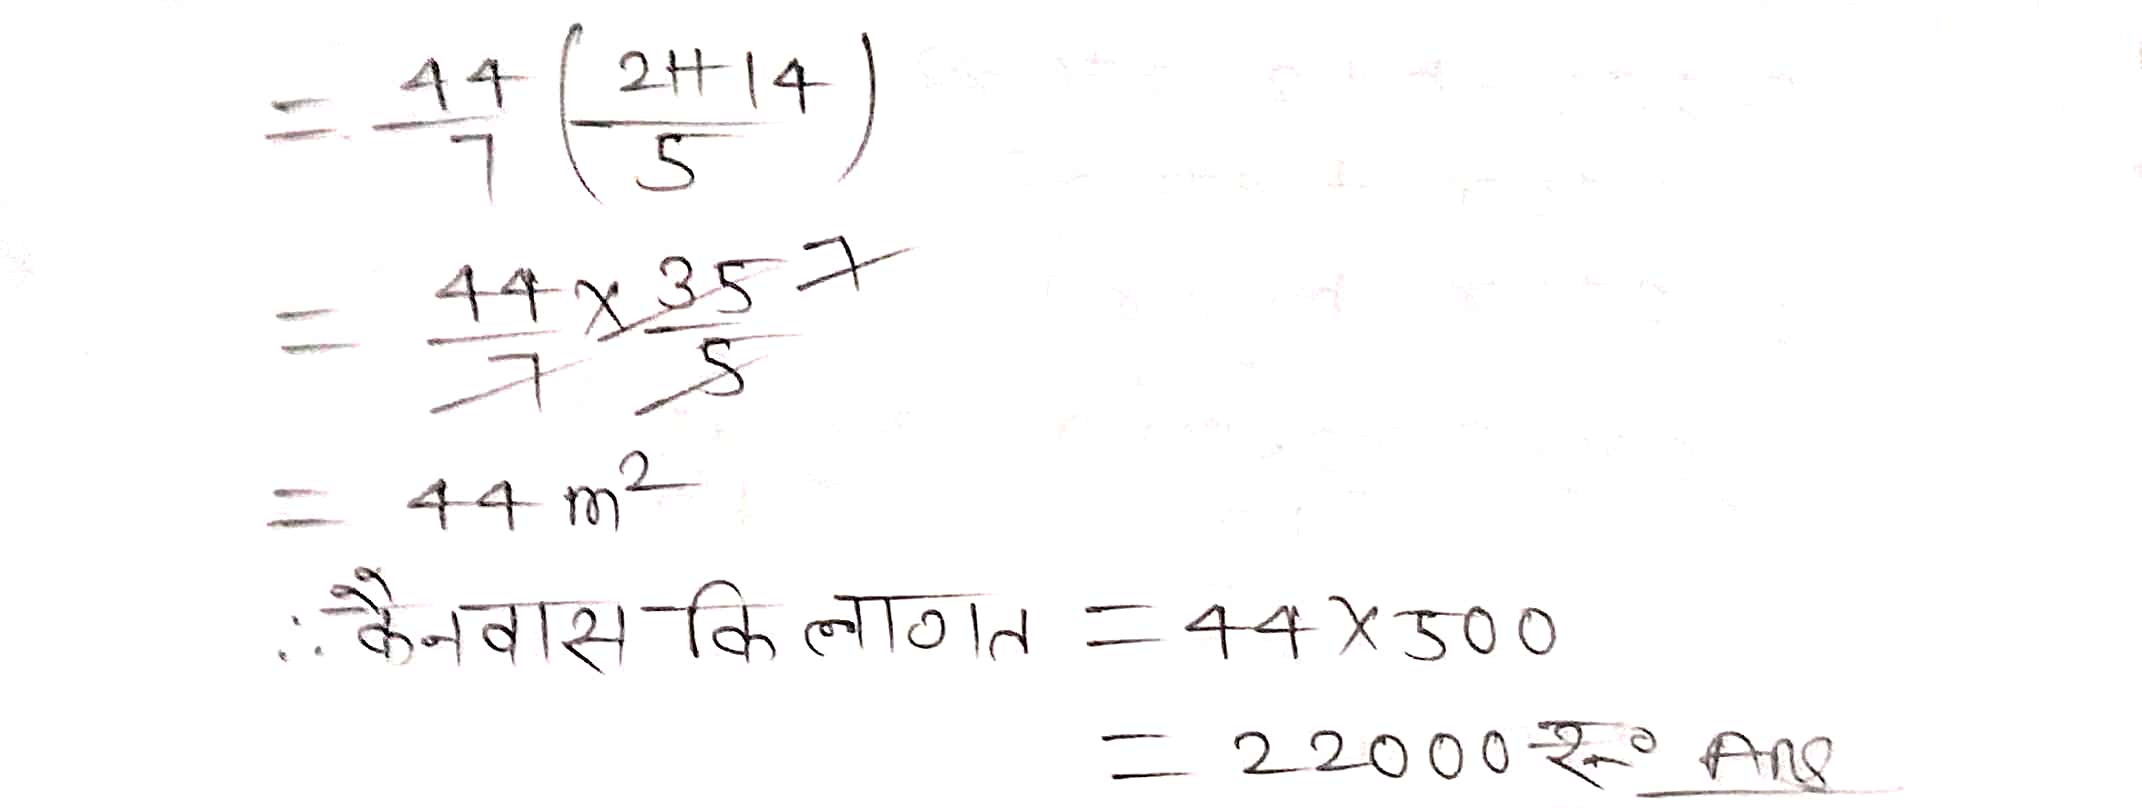 = 44/7 (21+14/5)
= 44/7 × 35/5 7
= 44 m²
∴ कैनवास कि लागत = 44 × 500
= 22000 रू० Ans